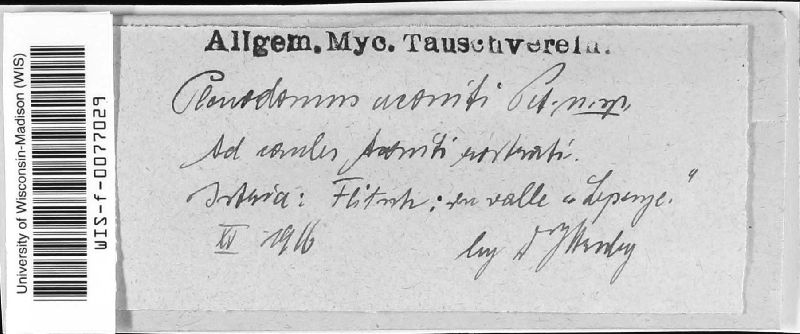 University of Wisconsin-Madison (WIS)
WIS-f-0077029
Allgem. Myc. Tauschverein.
Plenodomus aconiti Pet. n. sp.
Ad caules Aconiti rostrati.
Istria: Flitsch: in valle „Lepenje."
1916
leg